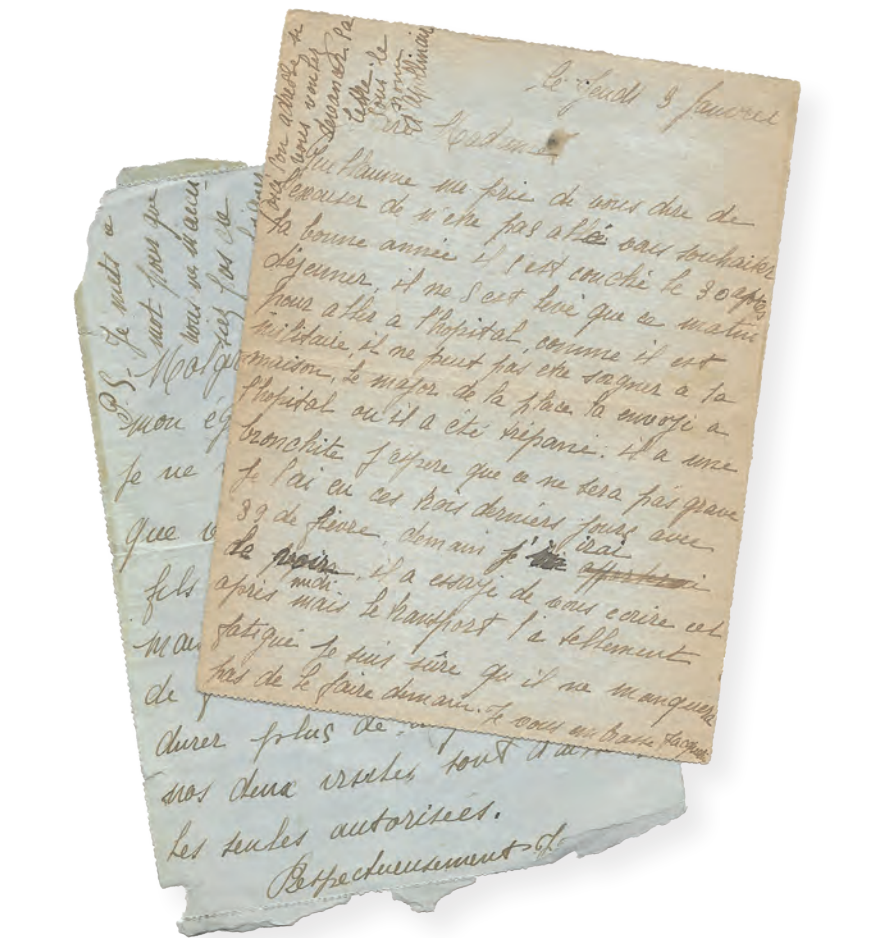 le Jeudi 3 Janvier
Madame
Guillaume me prie de vous dire de
l'excuser de n'etre pas allé vous souhaiter
la bonne année il s'est couché le 30 apres
déjeuner, il ne s'est levé que ce matin
pour aller a l'hopital, comme il est
militaire, il ne peut pas etre soigner a la
maison, le major de la place l'a envoyé a
l'hopital ou il a été trépané. il a une
bronchite j'espere que ce ne sera pas grave
Je l'ai eu ces trois derniers jours avec
39 de fièvre, demain j'irai
le voir, il a essayé de vous ecrire cet
apres midi mais le transport l'a tellement
fatigué je suis sûre qu'il ne manquera
pas de le faire demain. Je vous embrasse Jacqueline
adresse si
vous voulez
sous le
nom
d'Apollinaire
PS. Je mets a
mot pour que
vous
pas ce
Malgré
mon
Je ne
que
fils
mais
de
durer plus de
nos deux visites sont
les seules autorisées.
Respectueusement J.